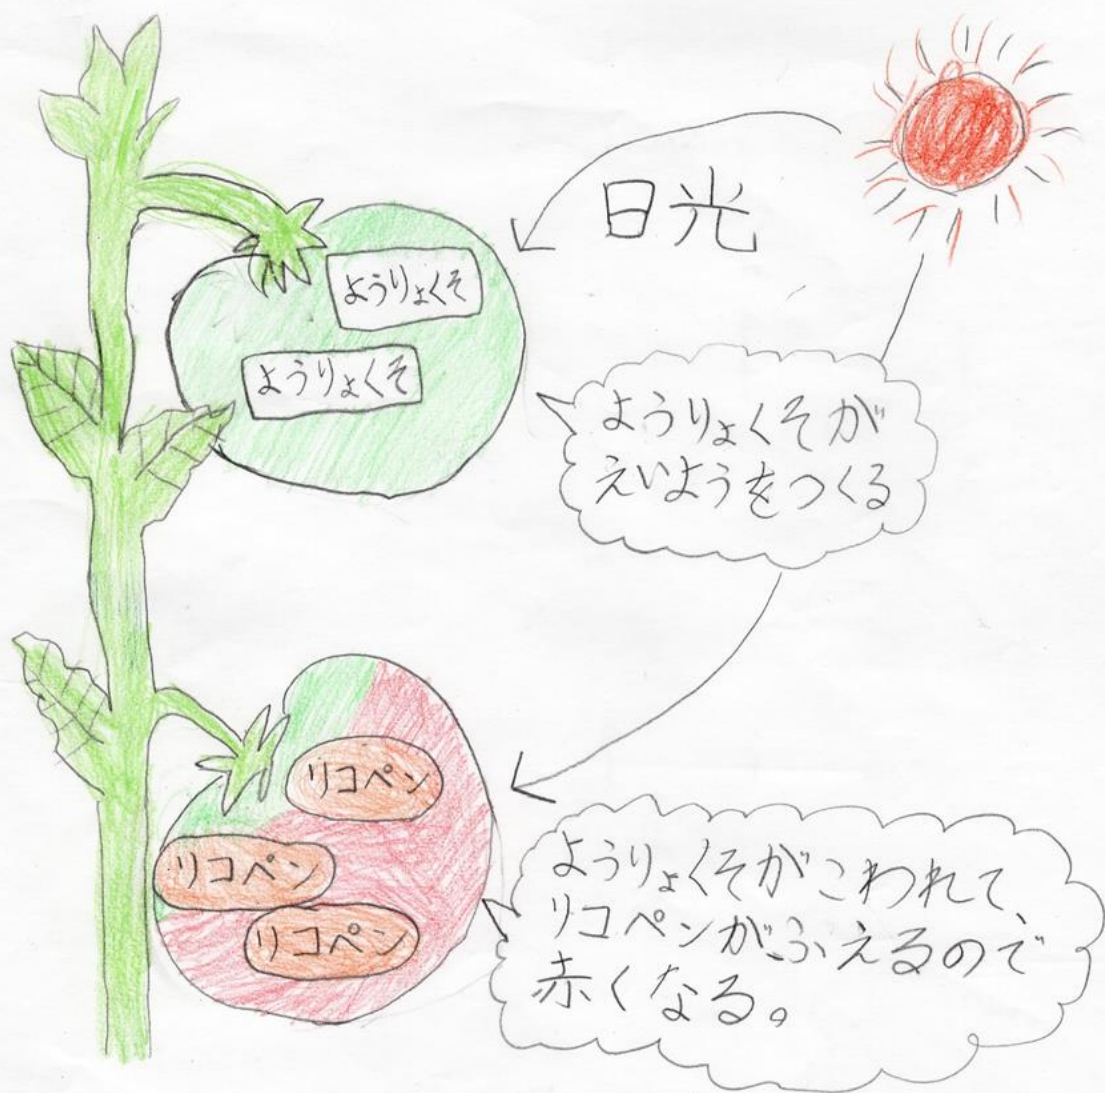 日光
ようりょくそ
ようりょくそ
ようりょくそが
えいようをつくる
リコペン
リコペン
リコペン
ようりょくそがこわれて、
リコペンがふえるので
赤くなる。